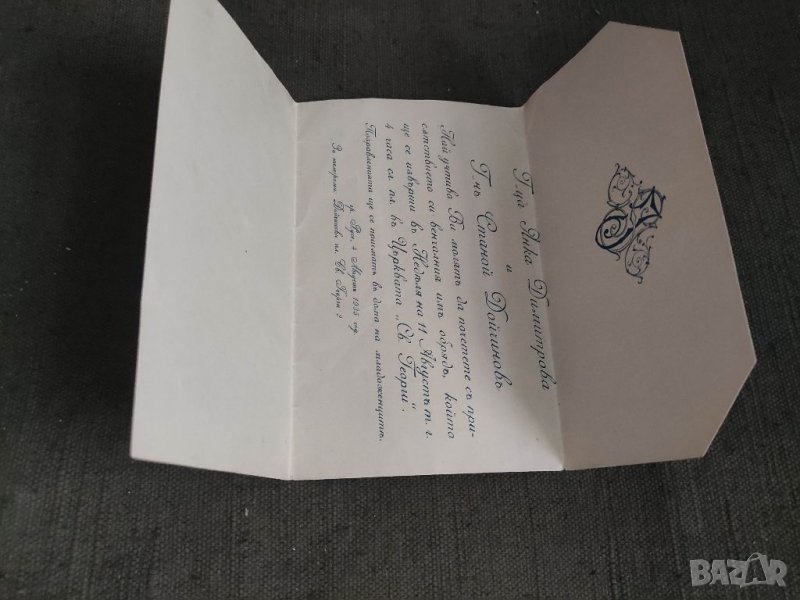 Г-ца Янка Димитрова
и
Г-нъ Станой Дойчиновъ
Най учтиво Ви молятъ да почетете съ при-
сѫтствието си венчалния имъ обрядъ, който
ще се извърши въ Недѣля на 11 Августъ т. г.
4 часа сл. пл. въ Църквата „Св. Георги“.
Поздравленията ще се приематъ въ дома на младоженцитѣ.
4 Августъ 1935 год.
Св. Георги 2
BAZAR